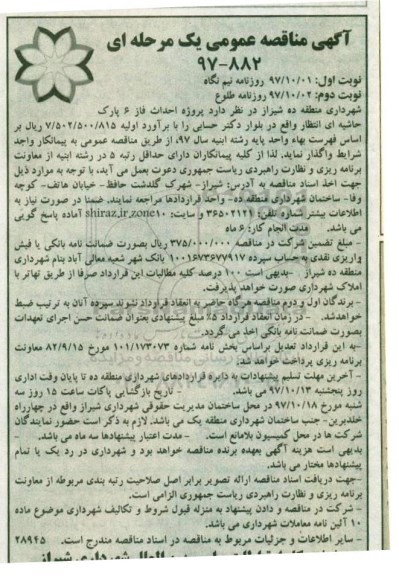 آگهی مناقصه عمومی یک مرحله ای
۹۷-۸۸۲
نوبت اول: ۹۷/۱۰/۰۱ روزنامه نیم نگاه
نوبت دوم: ۹۷/۱۰/۰۲ روزنامه طلوع
شهرداری منطقه ده شیراز در نظر دارد پروژه احداث فاز ۶ پارک
حاشیه ای انتظار واقع در بلوار دکتر حسابی را با برآورد اولیه ۷/۵۰۲/۵۰۰/۸۱۵ ریال بر
اساس فهرست بهاء واحد پایه رشته ابنیه سال ۹۷، از طریق مناقصه عمومی به پیمانکار واجد
شرایط واگذار نماید. لذا از کلیه پیمانکاران دارای حداقل رتبه ۵ در رشته ابنیه از معاونت
برنامه ریزی و نظارت راهبردی ریاست جمهوری دعوت بعمل می آید، با توجه به موارد ذیل
جهت اخذ اسناد مناقصه به آدرس: شیراز- شهرک گلدشت حافظ- خیابان هاتف- کوچه
وفا- ساختمان شهرداری منطقه ده- واحد قراردادها مراجعه نمایند. ضمنا در صورت نیاز به
اطلاعات بیشتر شماره تلفن: ۳۶۵۰۲۱۲۱ و سایت: shiraz.ir,zone10 آماده پاسخ گویی
می باشد. مدت انجام کار: ۶ ماه
- مبلغ تضمین شرکت در مناقصه ۳۷۵/۰۰۰/۰۰۰ ریال بصورت ضمانت نامه بانکی یا فیش
واریزی نقدی به حساب سپرده ۱۰۰۱۶۷۳۶۷۷۹۱۷ بانک شهر شعبه معالی آباد بنام شهرداری
منطقه ده شیراز -بدیهی است ۱۰۰ درصد کلیه مطالبات این قرارداد صرفا از طریق تهاتر با
املاک شهرداری صورت خواهد پذیرفت.
- برندگان اول و دوم مناقصه هرگاه حاضر به انعقاد قرارداد نشوند سپرده آنان به ترتیب ضبط
خواهدشد. - در زمان انعقاد قرارداد ۵٪ مبلغ پیشنهادی بعنوان ضمانت حسن اجرای تعهدات
بصورت ضمانت نامه بانکی اخذ می گردد.
-به این قرارداد تعدیل براساس بخش نامه شماره ۱۰۱/۱۷۳۰۷۳ مورخ ۸۲/۹/۱۵ معاونت
برنامه ریزی پرداخت خواهد شد.
- آخرین مهلت تسلیم پیشنهادات به دایره قراردادهای شهرداری منطقه ده تا پایان وقت اداری
روز پنجشنبه ۹۷/۱۰/۱۳ می باشد. - تاریخ بازگشایی پاکات ساعت ۱۵ روز سه
شنبه مورخ ۹۷/۱۰/۱۸ در محل ساختمان مدیریت حقوقی شهرداری شیراز واقع در چهارراه
خلدبرین- جنب ساختمان شهرداری منطقه یک می باشد. لازم به ذکر است حضور نمایندگان
شرکت ها در محل کمیسیون بلامانع است. - مدت اعتبار پیشنهادها سه ماه می باشد. -
بدیهی است هزینه آگهی بعهده برنده مناقصه خواهد بود و شهرداری در رد یک یا تمام
پیشنهادها مختار می باشد.
-جهت دریافت اسناد مناقصه ارائه تصویر برابر اصل صلاحیت رتبه بندی مربوطه از معاونت
برنامه ریزی و نظارت راهبردی ریاست جمهوری الزامی است.
- شرکت در مناقصه و دادن پیشنهاد به منزله قبول شروط و تکالیف شهرداری موضوع ماده
۱۰ آئین نامه معاملات شهرداری می باشد.
- سایر اطلاعات و جزئیات مربوط به مناقصه در اسناد مناقصه مندرج است. ۲۸۹۴۵